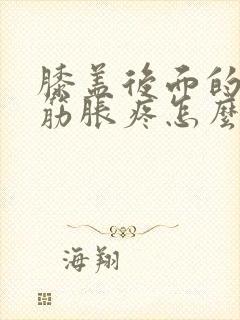 膝盖後面的
筋脹疼怎麼
海翔